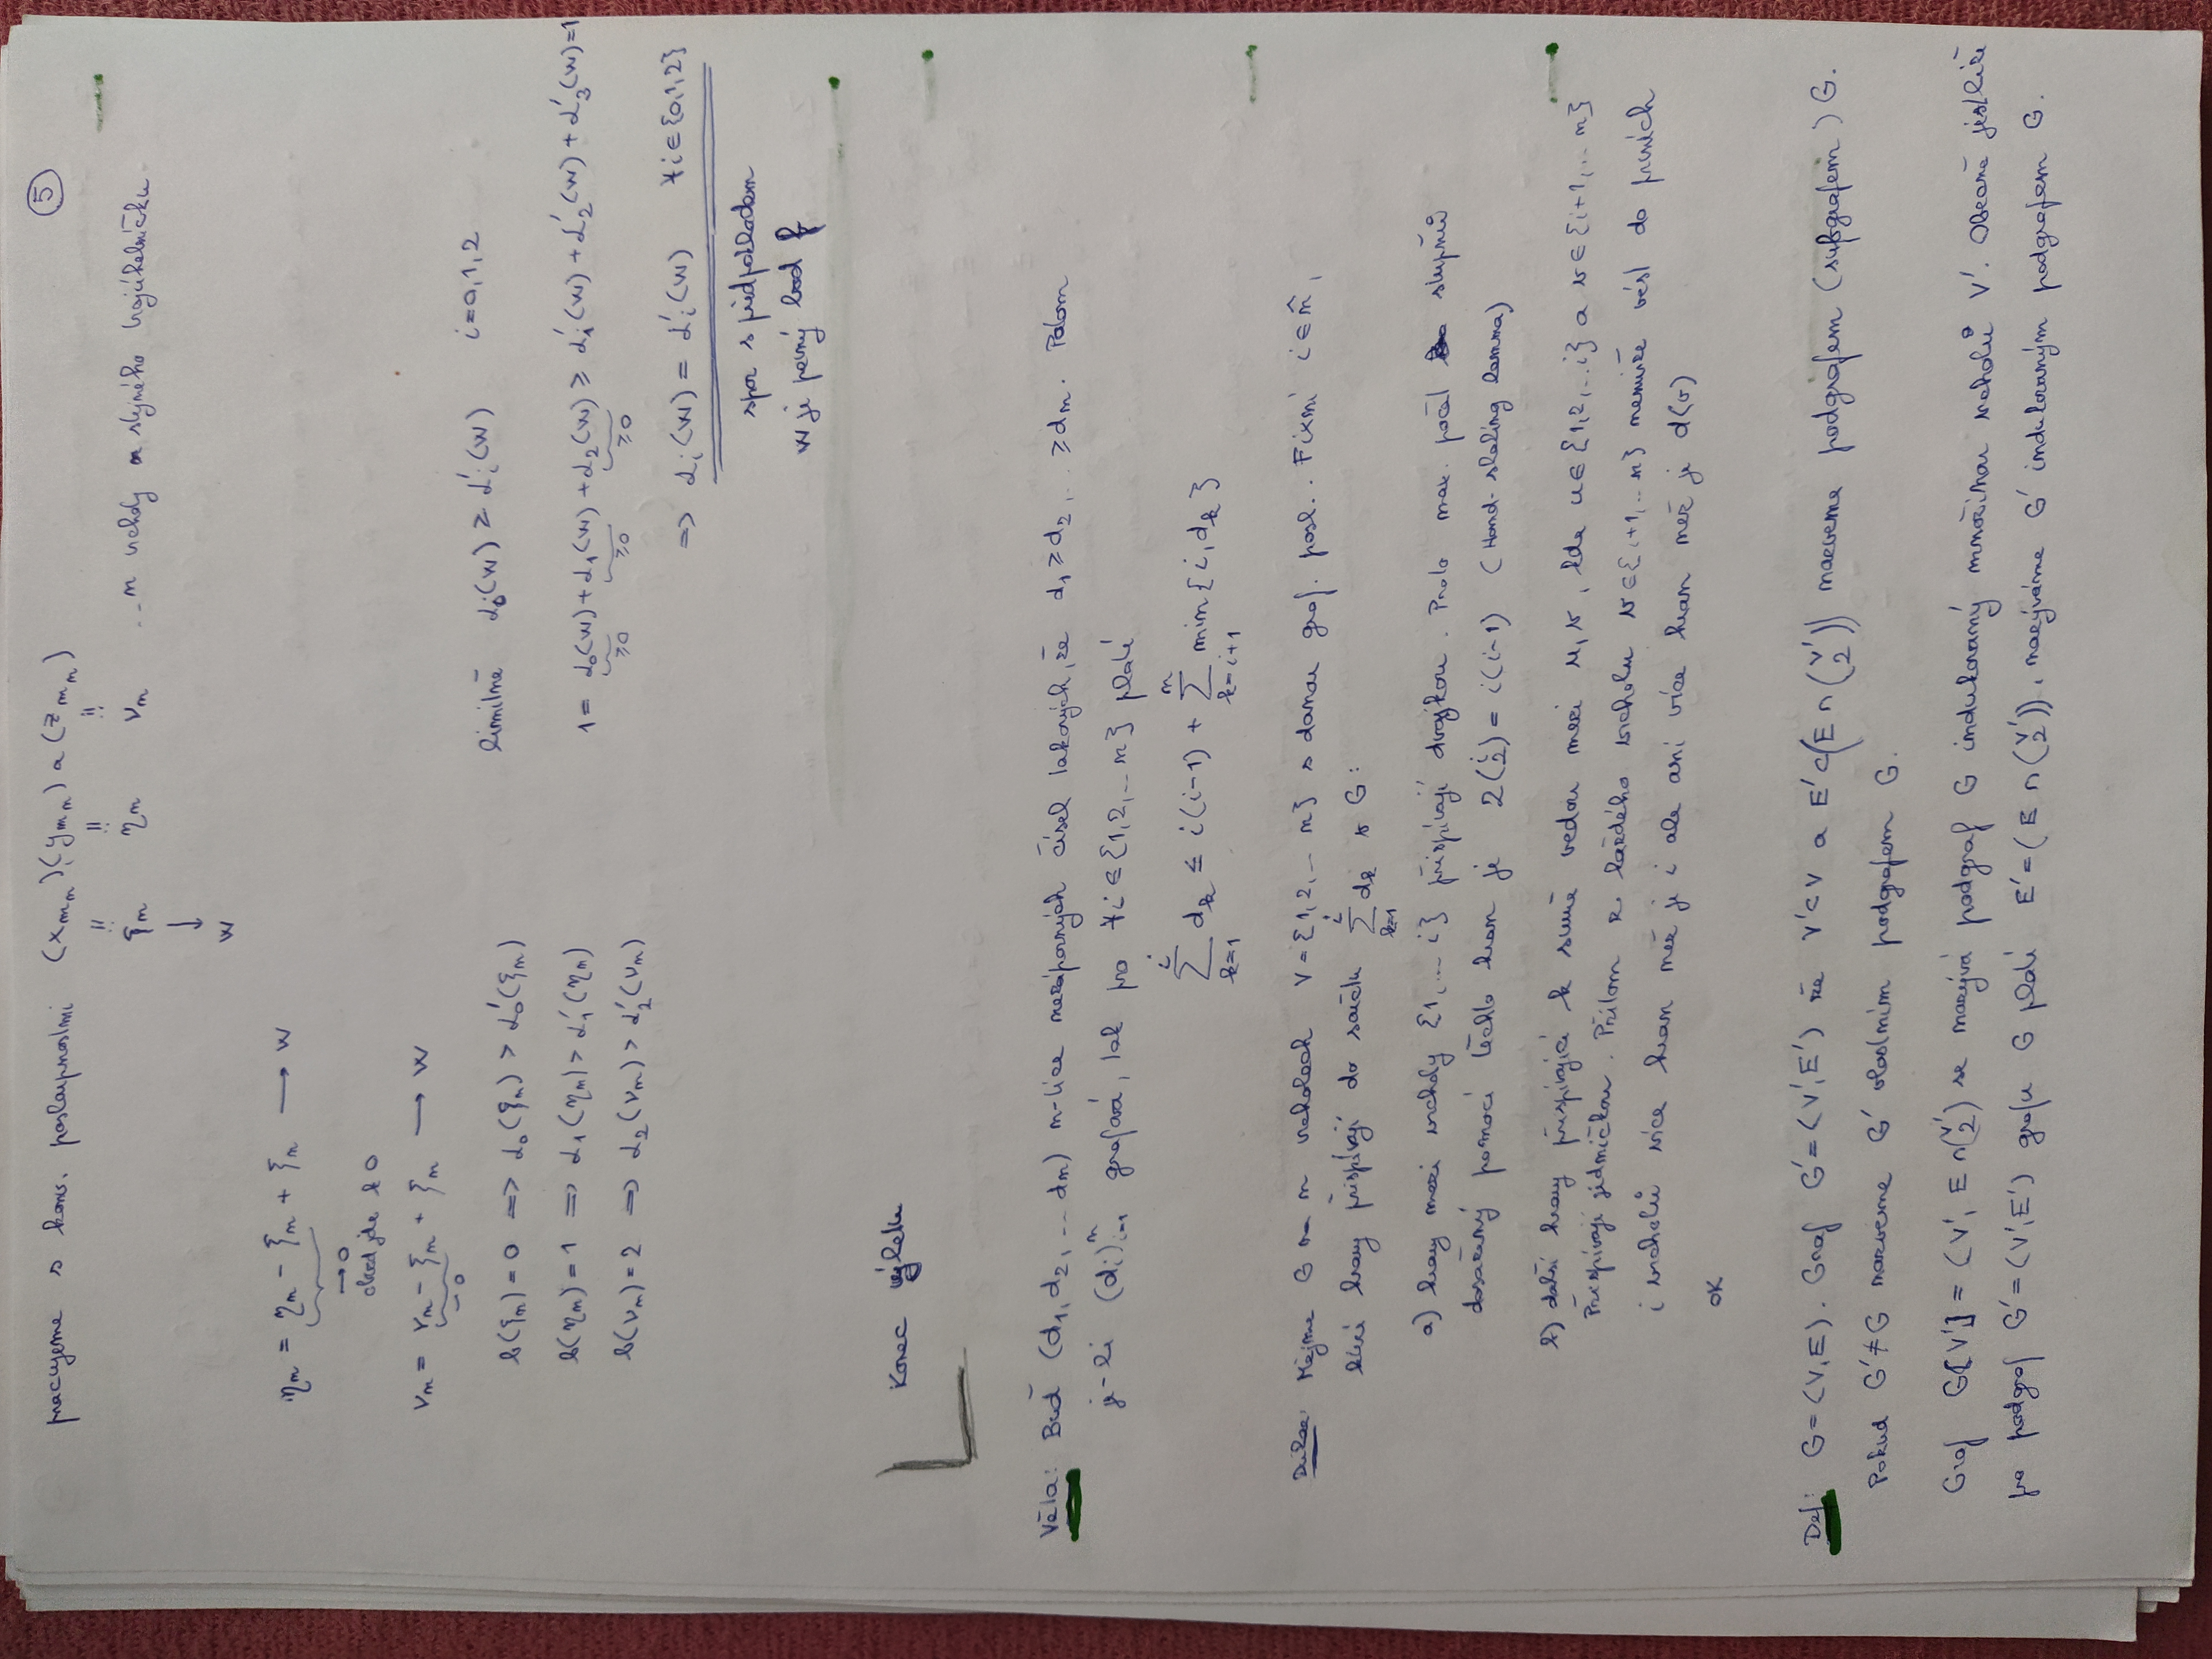 ⑤
pracujeme s konv. posloupnostmi (x_{m_n}) (y_{m_n}) a (z_{m_n}) .. n vrcholy stejného trojúhelníčku.
ξ_n η_n ν_n
↓
w
η_n = η_n - ξ_n + ξ_n → w
→0
ν_n = ν_n - ξ_n + ξ_n → w
→0
b(ξ_n) = 0 => d_0(ξ_n) > d_0'(ξ_n)
b(η_n) = 1 => d_1(η_n) > d_1'(η_n)
b(ν_n) = 2 => d_2(ν_n) > d_2'(ν_n)
limitně d_i(w) ≥ d_i'(w) i=0,1,2
1 = d_0(w) + d_1(w) + d_2(w) ≥ d_1'(w) + d_2'(w) + d_3'(w) = 1
≥0 ≥0 ≥0
=> d_i(w) = d_i'(w) ∀i∈{0,1,2}
spor s předpokladem
w je pevný bod f
Konec výletu
Věta: Buď (d_1, d_2, .. d_n) n-tice nezáporných čísel takových, že d_1 ≥ d_2, .. ≥ d_n. Potom
je-li (d_i)_{i=1}^n grafová, tak pro ∀i∈{1,2,.. n} platí
∑_{k=1}^{i} d_k ≤ i(i-1) + ∑_{k=i+1}^{n} min{i, d_k}
Důkaz: Mějme G na n vrcholech V={1,2,.. n} s danou graf. posl.. Fixni i∈n̂,
které hrany přispívají do součtu ∑_{k=1}^{i} d_k v G:
a) hrany mezi vrcholy {1,... i} přispívají dvojkou. Proto max. počet stupňů
dosažený pomocí těchto hran je 2(i 2) = i(i-1) (Hand-shaking lemma)
b) další hrany přispívající k sumě vedou mezi u, v, kde u∈{1,2,..i} a v∈{i+1,.. n}
Přispívají jedničkou. Přitom z každého vrcholu v∈{i+1,.. n} nemůže vést do prvních
i vrcholů více hran než je i ale ani více hran než je d(v)
OK
Def: G=(V,E). Graf G'=(V',E') že V'⊂V a E'⊂(E ∩ (V' 2)) nazveme podgrafem (subgrafem) G.
Pokud G'≠G nazveme G' vlastním podgrafem G.
Graf G[V'] = (V', E∩(V' 2)) se nazývá podgraf G indukovaný množinou vrcholů V'. Obecně jestliže
pro podgraf G'=(V',E') grafu G platí E'=(E ∩ (V' 2)), nazýváme G' indukovaným podgrafem G.